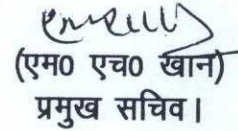 (एम0 एच0 खान)
प्रमुख सचिव।